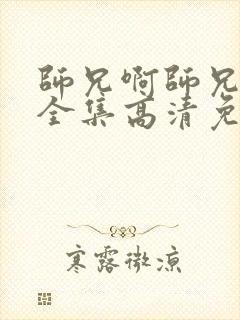 師兄啊師兄
全集高清免
寒露微涼